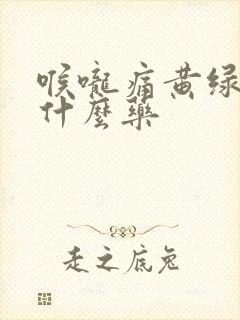 喉嚨痛黄绿
什麼藥
走之底兔